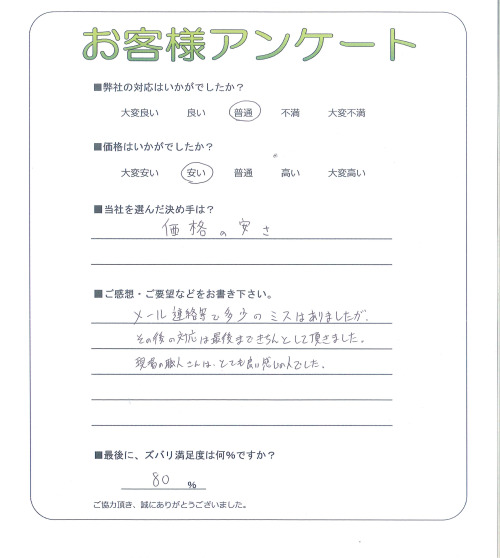 お客様アンケート
■弊社の対応はいかがでしたか？
大変良い 良い 普通 不満 大変不満
■価格はいかがでしたか？
大変安い 安い 普通 高い 大変高い
■当社を選んだ決め手は？
価格の安さ
■ご感想・ご要望などをお書き下さい。
メール連絡等で多少のミスはありましたが、
その後の対応は最後まできちんとして頂きました。
現場の職人さんは、とても良い感じの人でした。
■最後に、ズバリ満足度は何％ですか？
80 %
ご協力頂き、誠にありがとうございました。